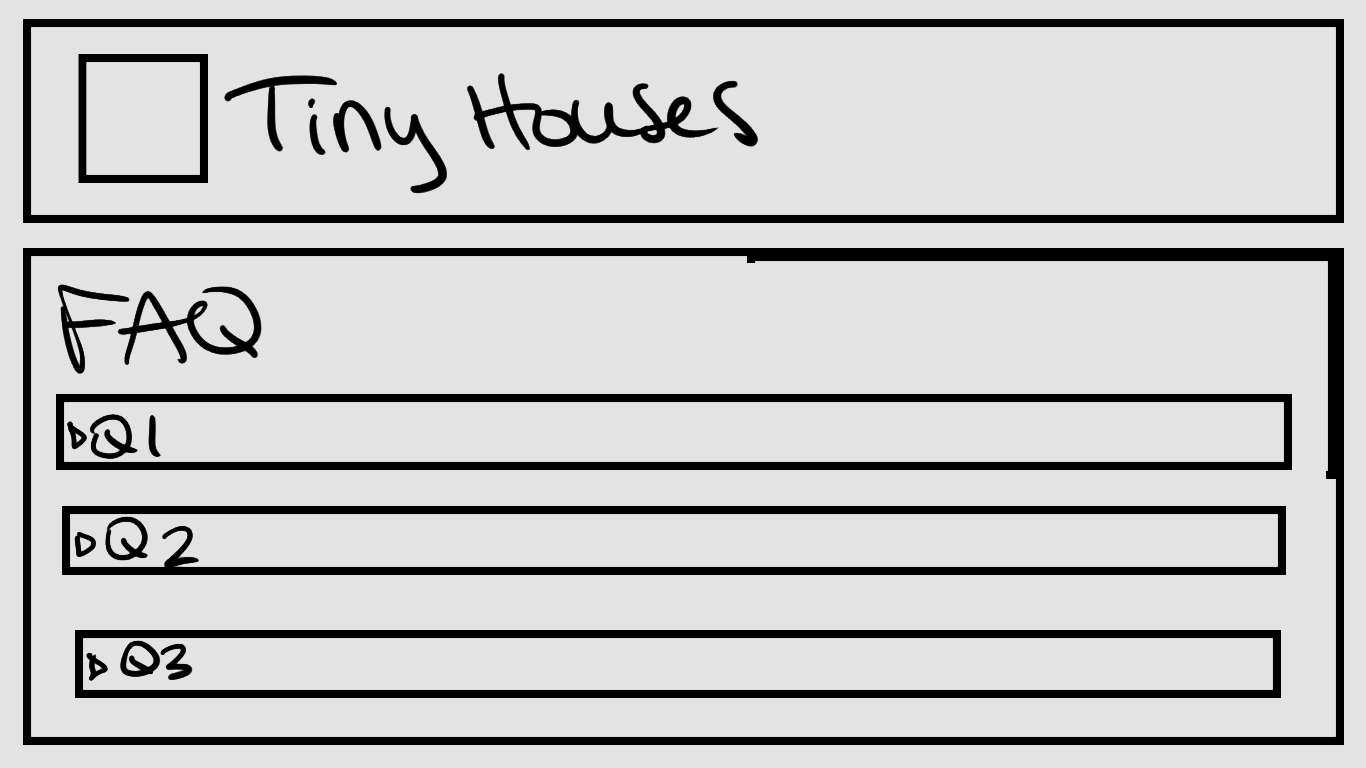 Tiny Houses
FAQ
Q1
Q2
Q3